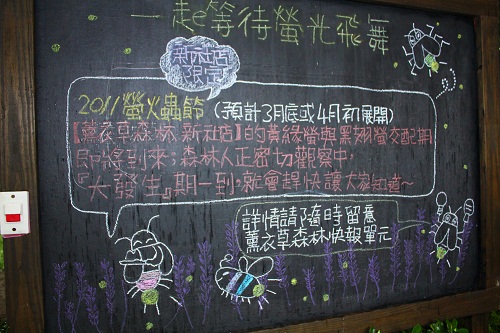 一起等待螢光飛舞
新社店
限定
2011螢火蟲節 (預計3月底或4月初展開)
【薰衣草森林 新社店】的黃緣螢與黑翅螢交配期
即將到來；森林人正密切觀察中，
『大發生』期一到，就會趕快讓大家知道~
詳情請隨時留意
薰衣草森林快報單元